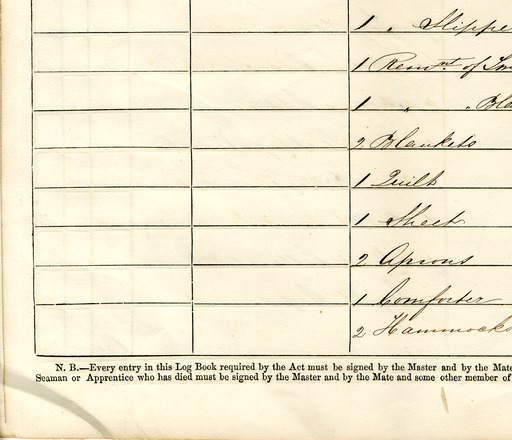 1 " Slippe
1 Remnt of
1 " " Bla
2 Blankets
1 Quilt
1 Sheet
2 Aprons
1 Comforter
2 Hammocks
N. B.—Every entry in this Log Book required by the Act must be signed by the Master and by the Mate
Seaman or Apprentice who has died must be signed by the Master and by the Mate and some other member of